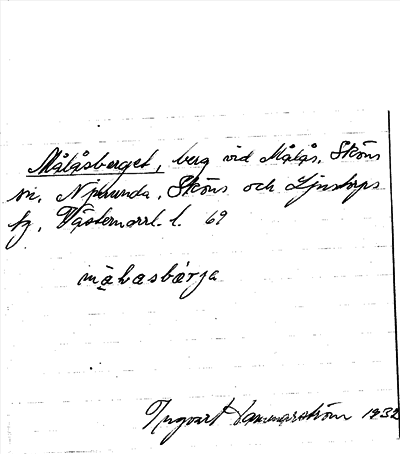 Målåsberget, berg vid Målås, Sköns
sn, Njurunda, Sköns och Ljustorps
tg, Västernorrl. l. 69
Ingvart Hammarström 1932